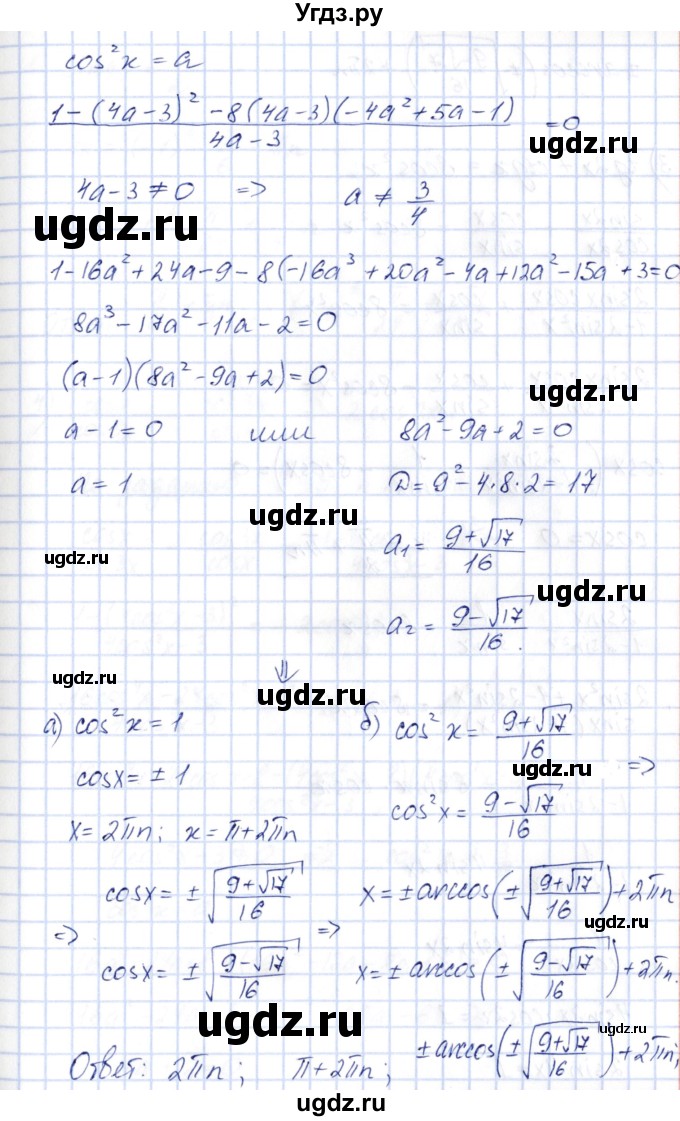 Угдз.ру
cos²x = a
(1-(4a-3)² -8(4a-3)(-4a²+5a-1))/(4a-3) = 0
4a-3 ≠ 0 => a ≠ 3/4
ugdz.ru
ugdz.ru
1-16a²+24a-9-8(-16a³+20a²-4a+12a²-15a+3=0
8a³-17a²-11a-2=0
ugdz.ru
(a-1)(8a²-9a+2)=0
ugdz.ru
a-1=0 или 8a²-9a+2=0
a=1 D=9²-4·8·2=17
ugdz.ru
a₁ = (9+√17)/16
ugdz.ru
ugdz.ru
a₂ = (9-√17)/16.
⇓
ugdz.ru
ugdz.ru
а) cos²x=1 б) cos²x = (9+√17)/16
ugdz.ru
=>
cosx=±1 cos²x = (9-√17)/16
x=2πn; x=π+2πn
ugdz.ru
cosx= ±√((9+√17)/16) x=±arccos(±√((9+√17)/16))+2πn
ugdz.ru
=> =>
cosx= ±√((9-√17)/16) x=±arccos(±√((9-√17)/16))+2πn.
ugdz.ru
ugdz.ru
Ответ: 2πn; π+2πn; ±arccos(±√((9+√17)/16))+2πn;
ugdz.ru
ugdz.ru